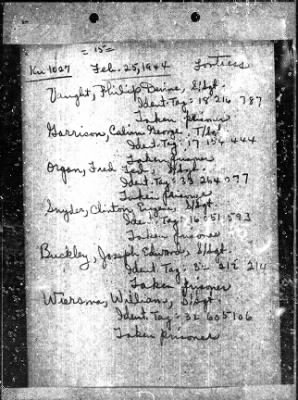 = 15 =
Ku 1027 Feb. 25, 1944 Fortress
Vaught, Philip S/Sgt.
Ident. Tag: 18 216 787
Taken prisoner
Garrison, Calvin George, T/Sgt
Ident. Tag: 17 154 444
Taken prisoner
Organ, Fred S/Sgt.
Ident. Tag: 39 264 077
Taken prisoner
Snyder, Clinton, S/Sgt.
Ident. Tag: 16 051 593
Taken prisoner
Buckley, Joseph Edward, S/Sgt.
Ident. Tag: 32 212 214
Taken prisoner
Wiersma, William, S/Sgt
Ident. Tag: 32 605 106
Taken prisoner